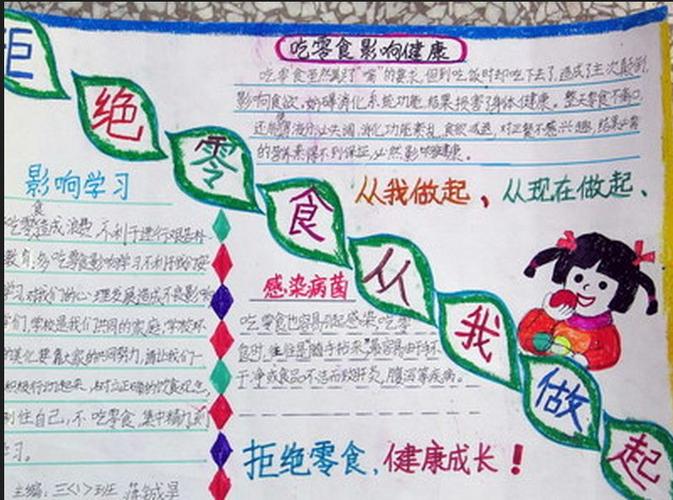 拒绝零食从我做起
吃零食影响健康
吃零食虽然满足了"嘴"的要求,但到吃饭时却吃下去了,造成了主次颠倒,
影响食欲,妨碍消化系统功能,结果损害了身体健康。整天零食不离口,
还消化功能紊乱,食欲减退,对正餐不感兴趣,结果
的营养素得不到保证,必然影响健康。
从我做起、从现在做起、
影响学习
吃零食造成浪费,不利于进行艰苦朴
教育,多吃零食影响学习不利于我们
学习,对我们的心理发展造成不良影响
学们,学校是我们共同的家庭,学校环
的美化要靠大家的共同努力,请让我们一
积极行动起来,树立正确的饮食观念,
住自己,不吃零食,集中精力
习。
主编:三<1>班
感染病菌
吃零食也容易引起感染,吃零
食时,往往是随手拈来,最容易由于不
干净或食品不洁而致肝炎,腹泻等疾病。
拒绝零食,健康成长!